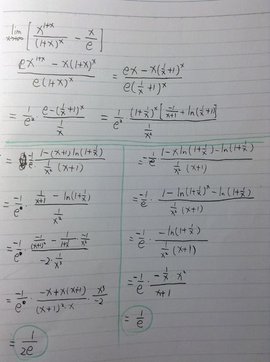 lim x→∞ [ x^{1+x}/(1+x)^x - x/e ]
(ex^{1+x} - x(1+x)^x)/(e(1+x)^x) = (ex - x(1/x+1)^x)/(e(1/x+1)^x)
= 1/e² (e-(1/x+1)^x)/(1/x) = 1/e² (1+1/x)^x[-1/(x+1) + ln(1/x+1)]/(1/x²)
= -1/e (1-(x+1)ln(1+1/x))/(1/x² (x+1))
= -1/e (1/(x+1) - ln(1+1/x))/(1/x²)
= -1/e (-1/(x+1)² - 1/(1+1/x) · -1/x²)/(-2·1/x³)
= -1/e · (-x+x(x+1))/((x+1)²·x) · x³/-2
= 1/2e
= -1/e (1-x ln(1+1/x) - ln(1+1/x))/(1/x² (x+1))
= -1/e (1-ln(1+1/x)^x - ln(1+1/x))/(1/x² (x+1))
= -1/e · -ln(1+1/x)/(1/x² (x+1))
= -1/e (-1/x · x²)/(x+1)
= 1/e